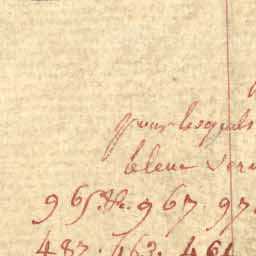 pour lesquels
bleue ver
965. &. 967. 97
487. 463. 464